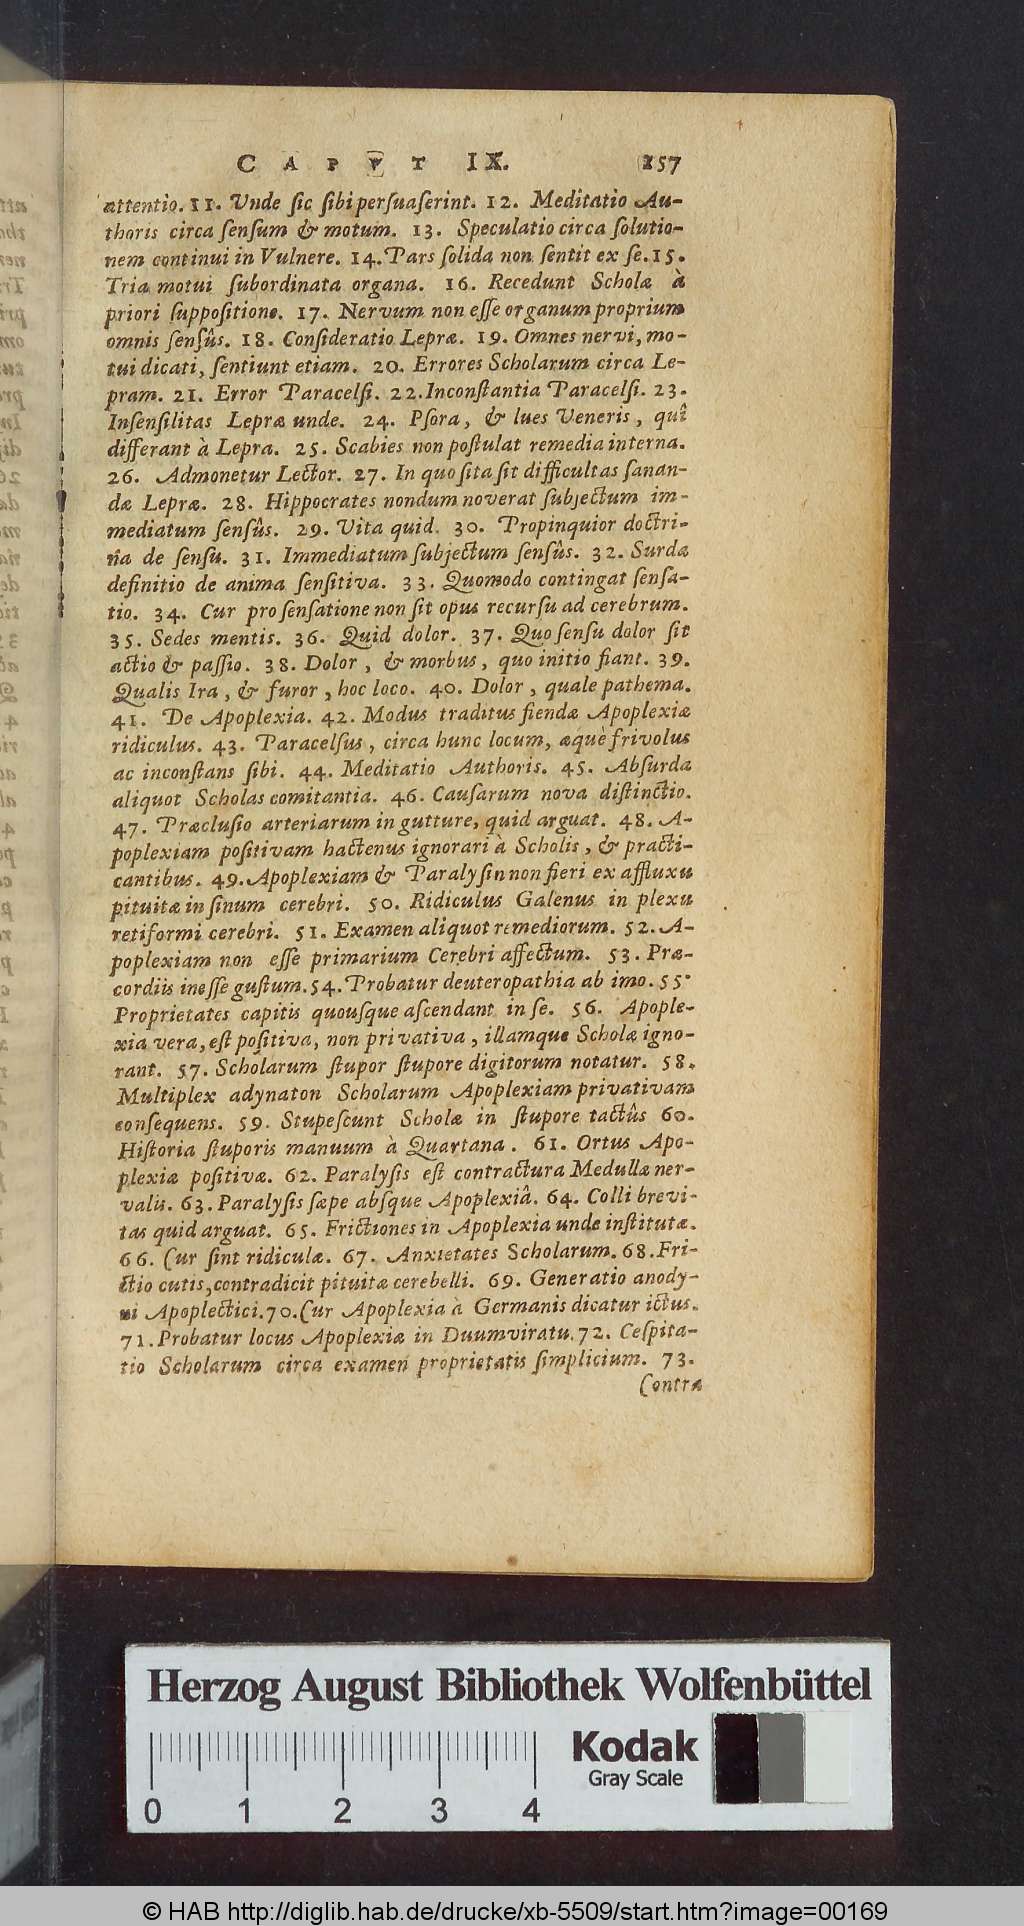 CAPVT IX. 257
attentio. 11. Unde sic sibi persuaserint. 12. Meditatio Au-
thoris circa sensum & motum. 13. Speculatio circa solutio-
nem continui in Vulnere. 14. Pars solida non sentit ex se. 15.
Tria motui subordinata organa. 16. Recedunt Scholæ à
priori suppositione. 17. Nervum non esse organum proprium
omnis sensûs. 18. Consideratio Lepræ. 19. Omnes nervi, mo-
tui dicati, sentiunt etiam. 20. Errores Scholarum circa Le-
pram. 21. Error Paracelsi. 22. Inconstantia Paracelsi. 23.
Insensilitas Lepræ unde. 24. Psora, & lues Veneris, quî
differant à Lepra. 25. Scabies non postulat remedia interna.
26. Admonetur Lector. 27. In quo sita sit difficultas sanan-
dæ Lepræ. 28. Hippocrates nondum noverat subjectum im-
mediatum sensûs. 29. Vita quid. 30. Propinquior doctri-
na de sensu. 31. Immediatum subjectum sensûs. 32. Surda
definitio de anima sensitiva. 33. Quomodo contingat sensa-
tio. 34. Cur pro sensatione non sit opus recursu ad cerebrum.
35. Sedes mentis. 36. Quid dolor. 37. Quo sensu dolor sit
actio & passio. 38. Dolor, & morbus, quo initio fiant. 39.
Qualis Ira, & furor, hoc loco. 40. Dolor, quale pathema.
41. De Apoplexia. 42. Modus traditus fiendæ Apoplexiæ
ridiculus. 43. Paracelsus, circa hunc locum, æque frivolus
ac inconstans sibi. 44. Meditatio Authoris. 45. Absurda
aliquot Scholas comitantia. 46. Causarum nova distinctio.
47. Præclusio arteriarum in gutture, quid arguat. 48. A-
poplexiam positivam hactenus ignorari à Scholis, & practi-
cantibus. 49. Apoplexiam & Paralysin non fieri ex affluxu
pituitæ in sinum cerebri. 50. Ridiculus Galenus in plexu
retiformi cerebri. 51. Examen aliquot remediorum. 52. A-
poplexiam non esse primarium Cerebri affectum. 53. Præ-
cordiis inesse gustum. 54. Probatur deuteropathia ab imo. 55.
Proprietates capitis quousque ascendant in se. 56. Apople-
xia vera, est positiva, non privativa, illamque Scholæ igno-
rant. 57. Scholarum stupor stupore digitorum notatur. 58.
Multiplex adynaton Scholarum Apoplexiam privativam
consequens. 59. Stupescunt Scholæ in stupore tactûs 60.
Historia stuporis manuum à Quartana. 61. Ortus Apo-
plexiæ positivæ. 62. Paralysis est contractura Medullæ ner-
valis. 63. Paralysis sæpe absque Apoplexiâ. 64. Colli brevi-
tas quid arguat. 65. Frictiones in Apoplexia unde institutæ.
66. Cur sint ridiculæ. 67. Anxietates Scholarum. 68. Fri-
ctio cutis, contradicit pituitæ cerebelli. 69. Generatio anody-
ni Apoplectici. 70. Cur Apoplexia à Germanis dicatur ictus.
71. Probatur locus Apoplexiæ in Duumviratu. 72. Cespita-
tio Scholarum circa examen proprietatis simplicium. 73.
Contra
Herzog August Bibliothek Wolfenbüttel
Kodak
Gray Scale
0 1 2 3 4
© HAB http://diglib.hab.de/drucke/xb-5509/start.htm?image=00169